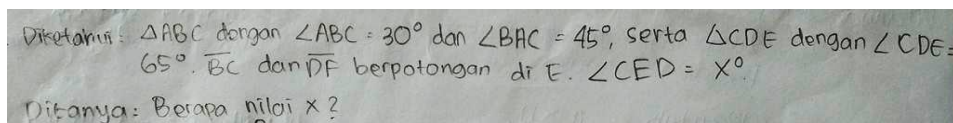 Diketahui : △ABC dengan ∠ABC = 30° dan ∠BAC = 45°, serta △CDE dengan ∠CDE =
65°. B̅C̅ dan D̅F̅ berpotongan di E. ∠CED = X°.
Ditanya : Berapa nilai x ?